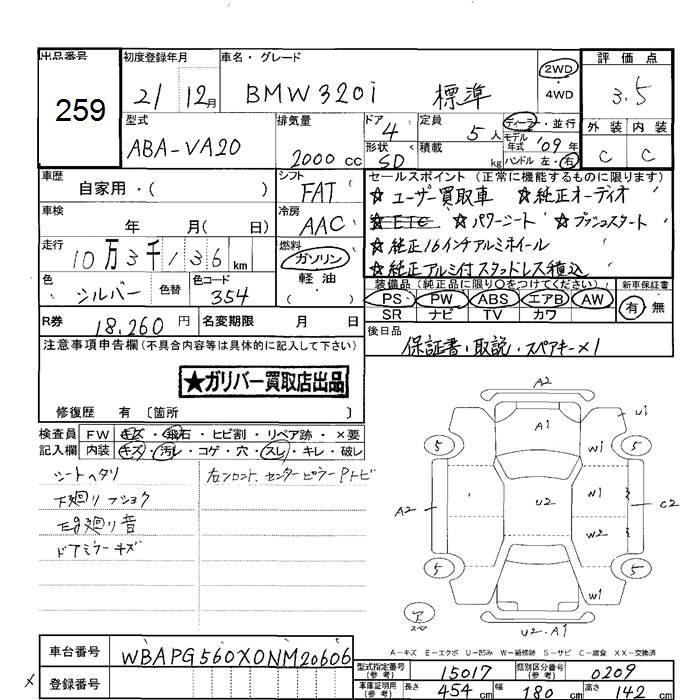 出品番号 初度登録年月 車名・グレード 評価点
259 21 12月 BMW320i 標準 2WD ・ 4WD 3.5
型式 排気量 ドア 4 定員 5人 ディーラー・並行 外装 内装
ABA-VA20 2000cc 形状 SD 積載 kg モデル年式 '09年 ハンドル 左・右 C C
車歴 自家用・( ) シフト FAT セールスポイント (正常に機能するものに限ります)
☆ユーザー買取車 ☆純正オーディオ
車検 年 月( 日) 冷房 AAC ☆ETC ☆パワーシート ☆プッシュスタート
走行 10万3千136km 燃料 ガソリン・軽油・( ) ☆純正16インチアルミホイール
☆純正アルミ付スタッドレス積込
色 シルバー 色替 色コード 354 装備品 (純正品に限り○をつけてください) 新車保証書
PS PW ABS エアB AW 有・無
SR ナビ TV カワ
R券 18,260円 名変期限 月 日 後日品
保証書・取説・スペアキー×1
注意事項申告欄(不具合内容等は具体的に記入して下さい)
★ガリバー買取店出品
修復歴 有 〔箇所 〕
検査員 FW キズ・飛石・ヒビ割・リペア跡・×要
記入欄 内装 キズ・汚レ・コゲ・穴・スレ・キレ・破レ
シートヘタリ 右フロント、センターピラーPトビ
下廻りフショク
廻り音
ドアミラーキズ
A2
A1 U1
5 W1 5
A2 U2 W1 C2
W2
5 W1 5
スペア U2・A1
A-キズ E-エクボ U-凹み W-補修跡 S-サビ C-腐食 XX-交換済
車台番号 WBAPG560X0NM20606
型式指定番号(参考) 15017 類別区分番号(参考) 0209
× 登録番号
車庫証明用(参考) 長さ 454cm 幅 180cm 高さ 142cm